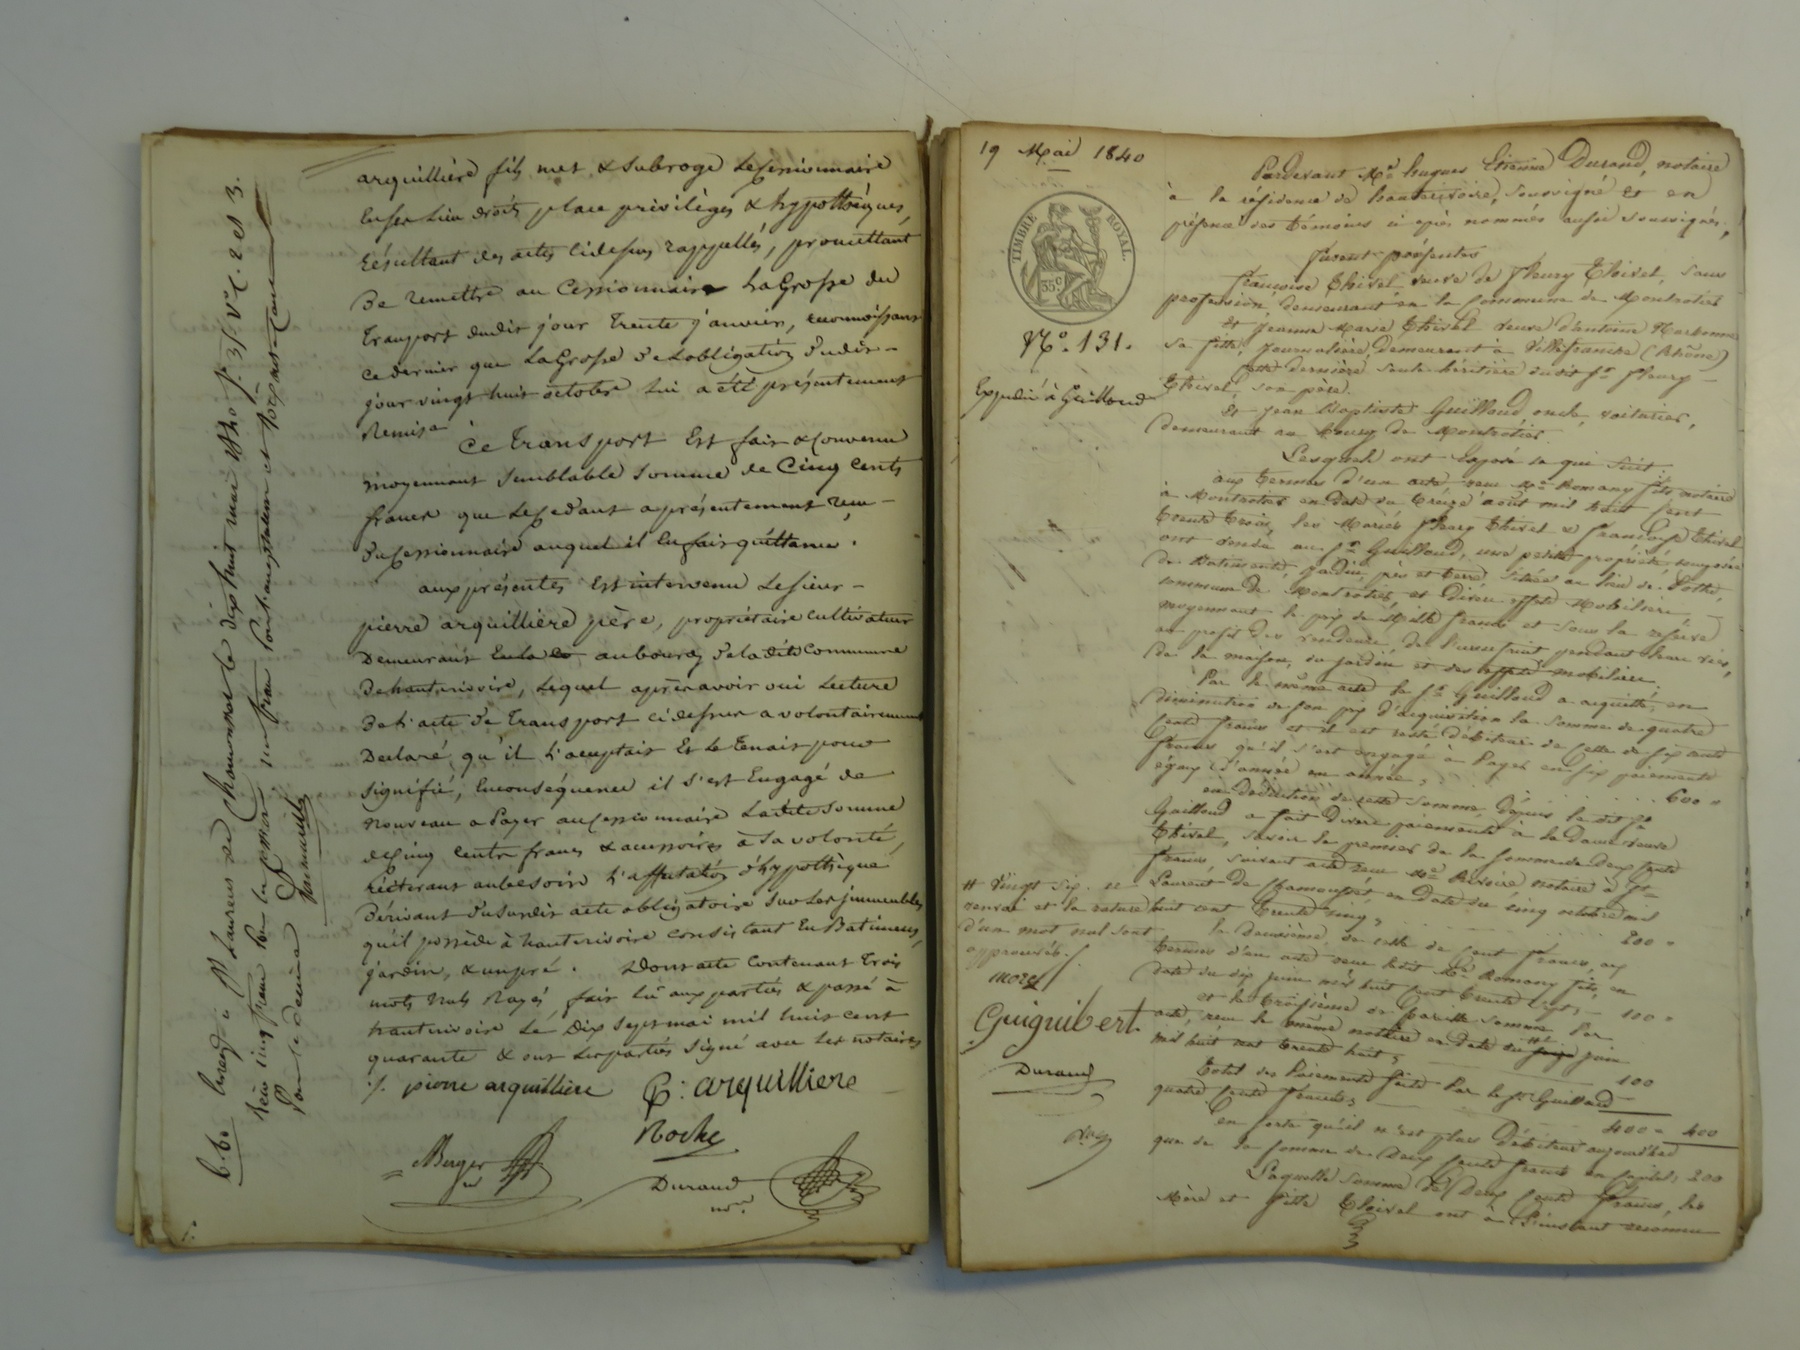 arquillière fils met & subroge le Cessionnaire
en ses Lieu droits place privilèges & hypothèques,
résultant des actes cidessus rappellés, promettant
De remettre au Cessionnaire La Grosse du
Transport dudit jour Trente janvier, reconnoissant
ce dernier que La Grosse de L'obligation dudit
jour vingt huit octobre lui a été présentement
Remise
Ce Transport Est fait & Convenu
moyennant semblable somme de Cinq Cents
francs que Le Cedant a présentement reçu
du Cessionnaire auquel il En fait quittance.
aux présentes Est intervenu Le sieur
pierre arquillière père, propriétaire Cultivateur
Demeurant au bourg de la dite Commune
De hauterivoire, Lequel après avoir oui Lecture
De L'acte de Transport cidessus a volontairement
Declaré qu'il L'acceptait Et Le Tenait pour
signifié, En conséquence il s'est Engagé de
nouveau a Payer au Cessionnaire Ladite somme
de Cinq Cents francs & accessoires à sa volonté,
réiterant au besoin L'affectation d'hypothèque
Dérivant du susdit acte obligatoire sur Les immeubles
qu'il possède à hauterivoire consistant En Batiments,
jardin, & un pré. Dont acte Contenant Trois
mots Nuls Rayés fait lû aux parties & passé à
hauterivoire Le Dix Sept mai mil huit cent
quarante & ont Les parties signé avec Les notaires
./. pierre arquilliere P: arquilliere
Roche
Berger Durand
nre
Enregé à St Laurent de Chamousset le dix huit mai 1840 fo 31 Vo C. 2 et 3.
Reçu cinq francs
Pour le décime
19 Mai 1840
TIMBRE ROYAL
35 c
No. 131.
Expédié à Guilloud
Pardevant Me hugues Etienne Durand, notaire
à la résidence de hauterivoire, soussigné et en
présence des témoins ci après nommés aussi soussignés,
furent présentes
françoise Thivel veuve de fleury Thivel, sans
profession, demeurant en la Commune de Montrotier
Et Jeanne Marie Thivel veuve d'antoine Narbonne
sa fille, Journalière, demeurant à Villefranche (Rhône)
Cette dernière seule héritière dudit Sr fleury
Thivel, son père.
Et Jean Baptiste Guilloud oncle, voiturier,
demeurant au Bourg de Montrotier.
Lesquels ont Exposé ce qui suit:
aux termes d'un acte reçu Me Romany fils notaire
à Montrotier en date du treize août mil huit cent
trente trois, les Mariés fleury Thivel & françoise Thivel
ont vendu au Sr Guilloud, une petite propriété composée
de Batiments, Jardin, pré et terre, située au lieu de
commune de Montrotier, et divers effets Mobiliers
moyennant le prix de Mille francs et sous la réserve
au profit des vendeurs, de l'usufruit pendant leur vie,
de la maison, du jardin et des effets mobiliers.
Par le même acte le Sr Guilloud a acquitté, en
diminution de son prix d'acquisition la somme de quatre
cents francs et il est resté débiteur de celle de six cents
francs qu'il s'est engagé à Payer en six paiements
égaux d'année en année, 600 "
en déduction de cette somme, depuis le dit Sr
Guilloud a fait divers paiements à la Dame veuve
Thivel, savoir le premier de la somme de deux cents
francs, suivant acte reçu Me Rivoire notaire à St
Laurent de Chamousset, en date du cinq octobre mil
huit cent trente cinq, 200 "
le deuxième, de celle de cent francs, aux
termes d'un acte reçu ledit Me Romany fils, en
date du dix juin mil huit cent trente sept, 100 "
et le troisième de Pareille somme Par
acte, reçu le même notaire en date du juin
mil huit cent trente huit, 100
Total des Paiements faits Par le Sr Guilloud
quatre cents francs, 400 " 400
en sorte qu'il n'est plus Débiteur aujourd'hui
que de la somme de Deux cents francs en capital, 200
Laquelle somme de Deux cents francs, les
Mère et fille Thivel ont à l'instant reconnu
# vingt six. ce
renvoi et la rature
d'un mot nul sont
approuvés.
morel
Guiguibert
Durand